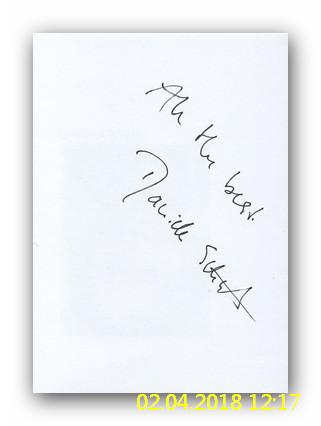 All the best.
Danielle
02.04.2018 12:17